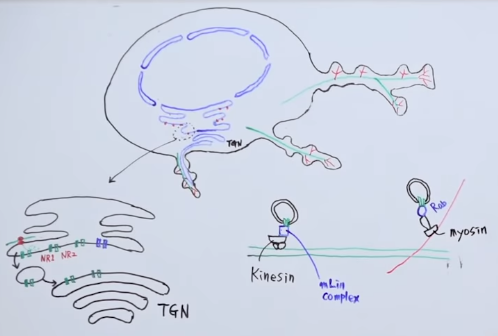 TGN
NR1 NR2
TGN
Kinesin
mLin
complex
Rab
myosin